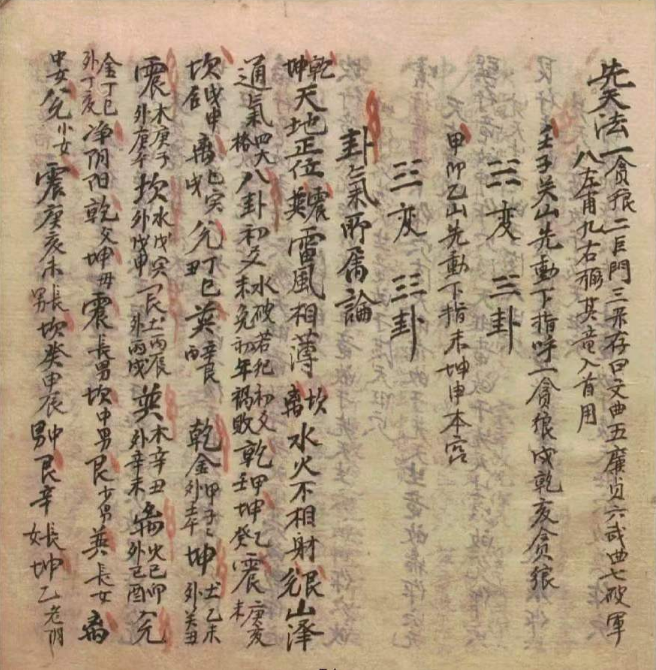 先天法一貪狼二巨門三禄存四文曲五廉貞六武曲七破軍
八左甫九右弼其竜入首用
壬子癸山先動下指呼一貪狼戌乾亥貪狼
☵変☰卦
甲卯乙山先動下指未坤申本宮
☰変☰卦
卦氣所属論
乾坤天地正位震巽雷風相薄坎离水火不相射艮兌山泽
通氣四大格八卦初爻水破若犯初爻未免初年禍敗乾甲坤乙坤癸震庚亥未
坎戊申辰离己寅戌兌丁巳丑巽辛艮丙乾金甲子外壬午坤土乙未外癸丑
震木庚子外庚午坎水戊寅外戊申艮土丙辰外丙戌巽木辛丑外辛未离火己卯外己酉兌
金丁巳外丁亥净阴阳乾父坤母震長男坎中男艮少男巽長女离
中女兌小女震庚亥未長男坎癸甲辰中男艮辛長女坤乙老阴